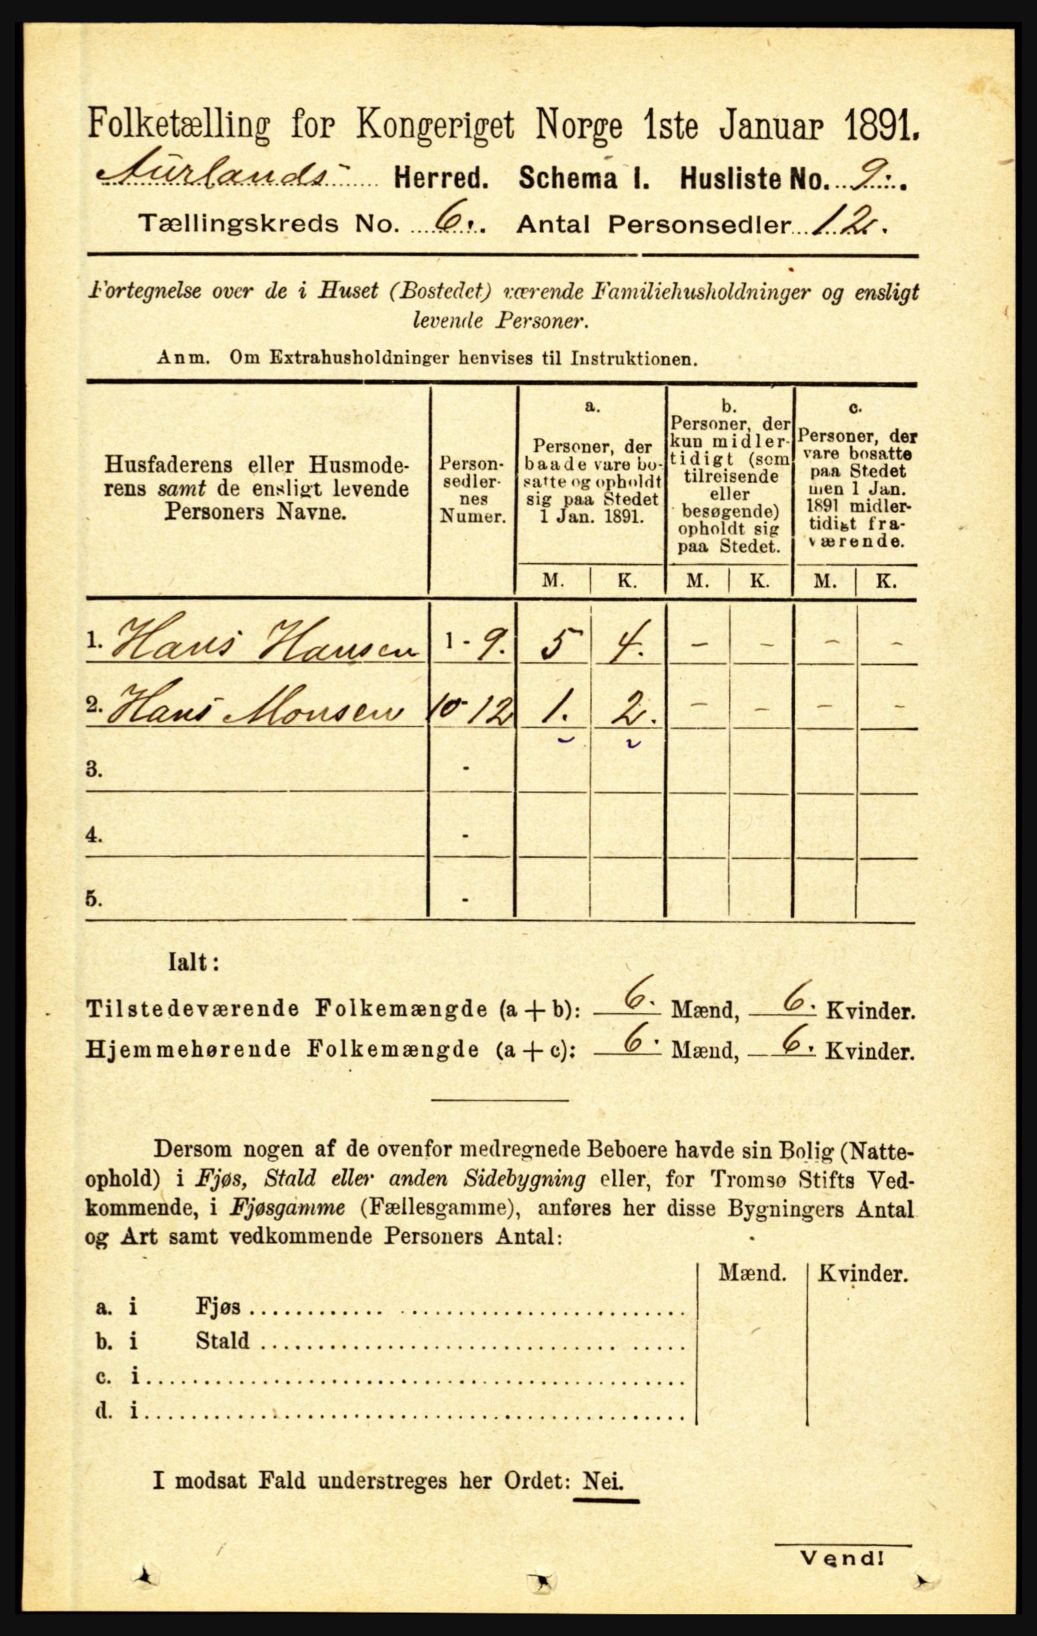 Folketælling for Kongeriget Norge 1ste Januar 1891.
Aurlands Herred. Schema I. Husliste No. 9.
Tællingskreds No. 6. Antal Personsedler 12.
Fortegnelse over de i Huset (Bostedet) værende Familiehusholdninger og ensligt
levende Personer.
Anm. Om Extrahusholdninger henvises til Instruktionen.
Husfaderens eller Husmode-
rens samt de ensligt levende
Personers Navne.
Person-
sedler-
nes
Numer.
a.
Personer, der
baade vare bo-
satte og opholdt
sig paa Stedet
1 Jan. 1891.
b.
Personer, der
kun midler-
tidigt (som
tilreisende
eller
besøgende)
opholdt sig
paa Stedet.
c.
Personer, der
vare bosatte
paa Stedet
men 1 Jan.
1891 midler-
tidigt fra-
værende.
M. K. M. K. M. K.
1. Hans Hansen 1 - 9. 5 4. - - - -
2. Hans Monsen 10 - 12 1. 2. - - - -
3. -
4. -
5. -
Ialt:
Tilstedeværende Folkemængde (a + b): 6. Mænd, 6. Kvinder.
Hjemmehørende Folkemængde (a + c): 6. Mænd, 6. Kvinder.
Dersom nogen af de ovenfor medregnede Beboere havde sin Bolig (Natte-
ophold) i Fjøs, Stald eller anden Sidebygning eller, for Tromsø Stifts Ved-
kommende, i Fjøsgamme (Fællesgamme), anføres her disse Bygningers Antal
og Art samt vedkommende Personers Antal:
Mænd. Kvinder.
a. i Fjøs
b. i Stald
c. i
d. i
I modsat Fald understreges her Ordet: Nei.
Vend!